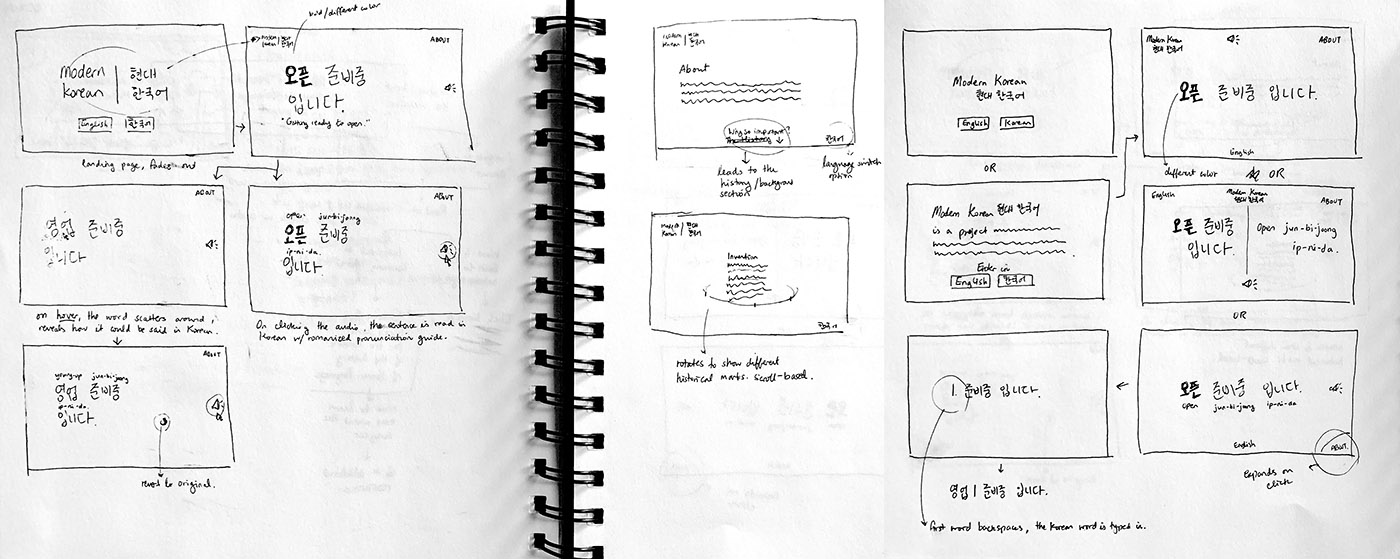 Modern
Korean
현대
한국어
English
한국어
landing page, fades out
bold/different color
modern
korean
현대
한국어
ABOUT
오픈 준비중
입니다.
"Getting ready to open."
ABOUT
영업 준비중
입니다
on hover, the word scatters around,
reveals how it could be said in Korean.
ABOUT
open jun-bi-joong
오픈 준비중
ip-ni-da.
입니다.
On clicking the audio, the sentence is read in
Korean w/ romanized pronunciation guide.
ABOUT
young-up jun-bi-joong
영업 준비중
ip-ni-da.
입니다.
revert to original.
modern
korean
현대
한국어
About
Why so important?
한국어
leads to the
history/background
section
language switch
option
modern
korean
현대
한국어
Invention
한국어
rotates to show different
historical marks. scroll-based.
Modern Korean
현대 한국어
English
Korean
OR
Modern Korean 현대 한국어
is a project
Enter in
English
한국어
Modern Korean
현대 한국어
ABOUT
오픈 준비중 입니다.
English
different color
OR
English
Modern Korean
현대 한국어
ABOUT
오픈 준비중
입니다.
Open jun-bi-joong
ip-ni-da.
OR
오픈 준비중 입니다.
open jun-bi-joong ip-ni-da
English
ABOUT.
expands on
click
| 준비중 입니다.
영업 | 준비중 입니다.
first word backspaces, the Korean word is typed in.